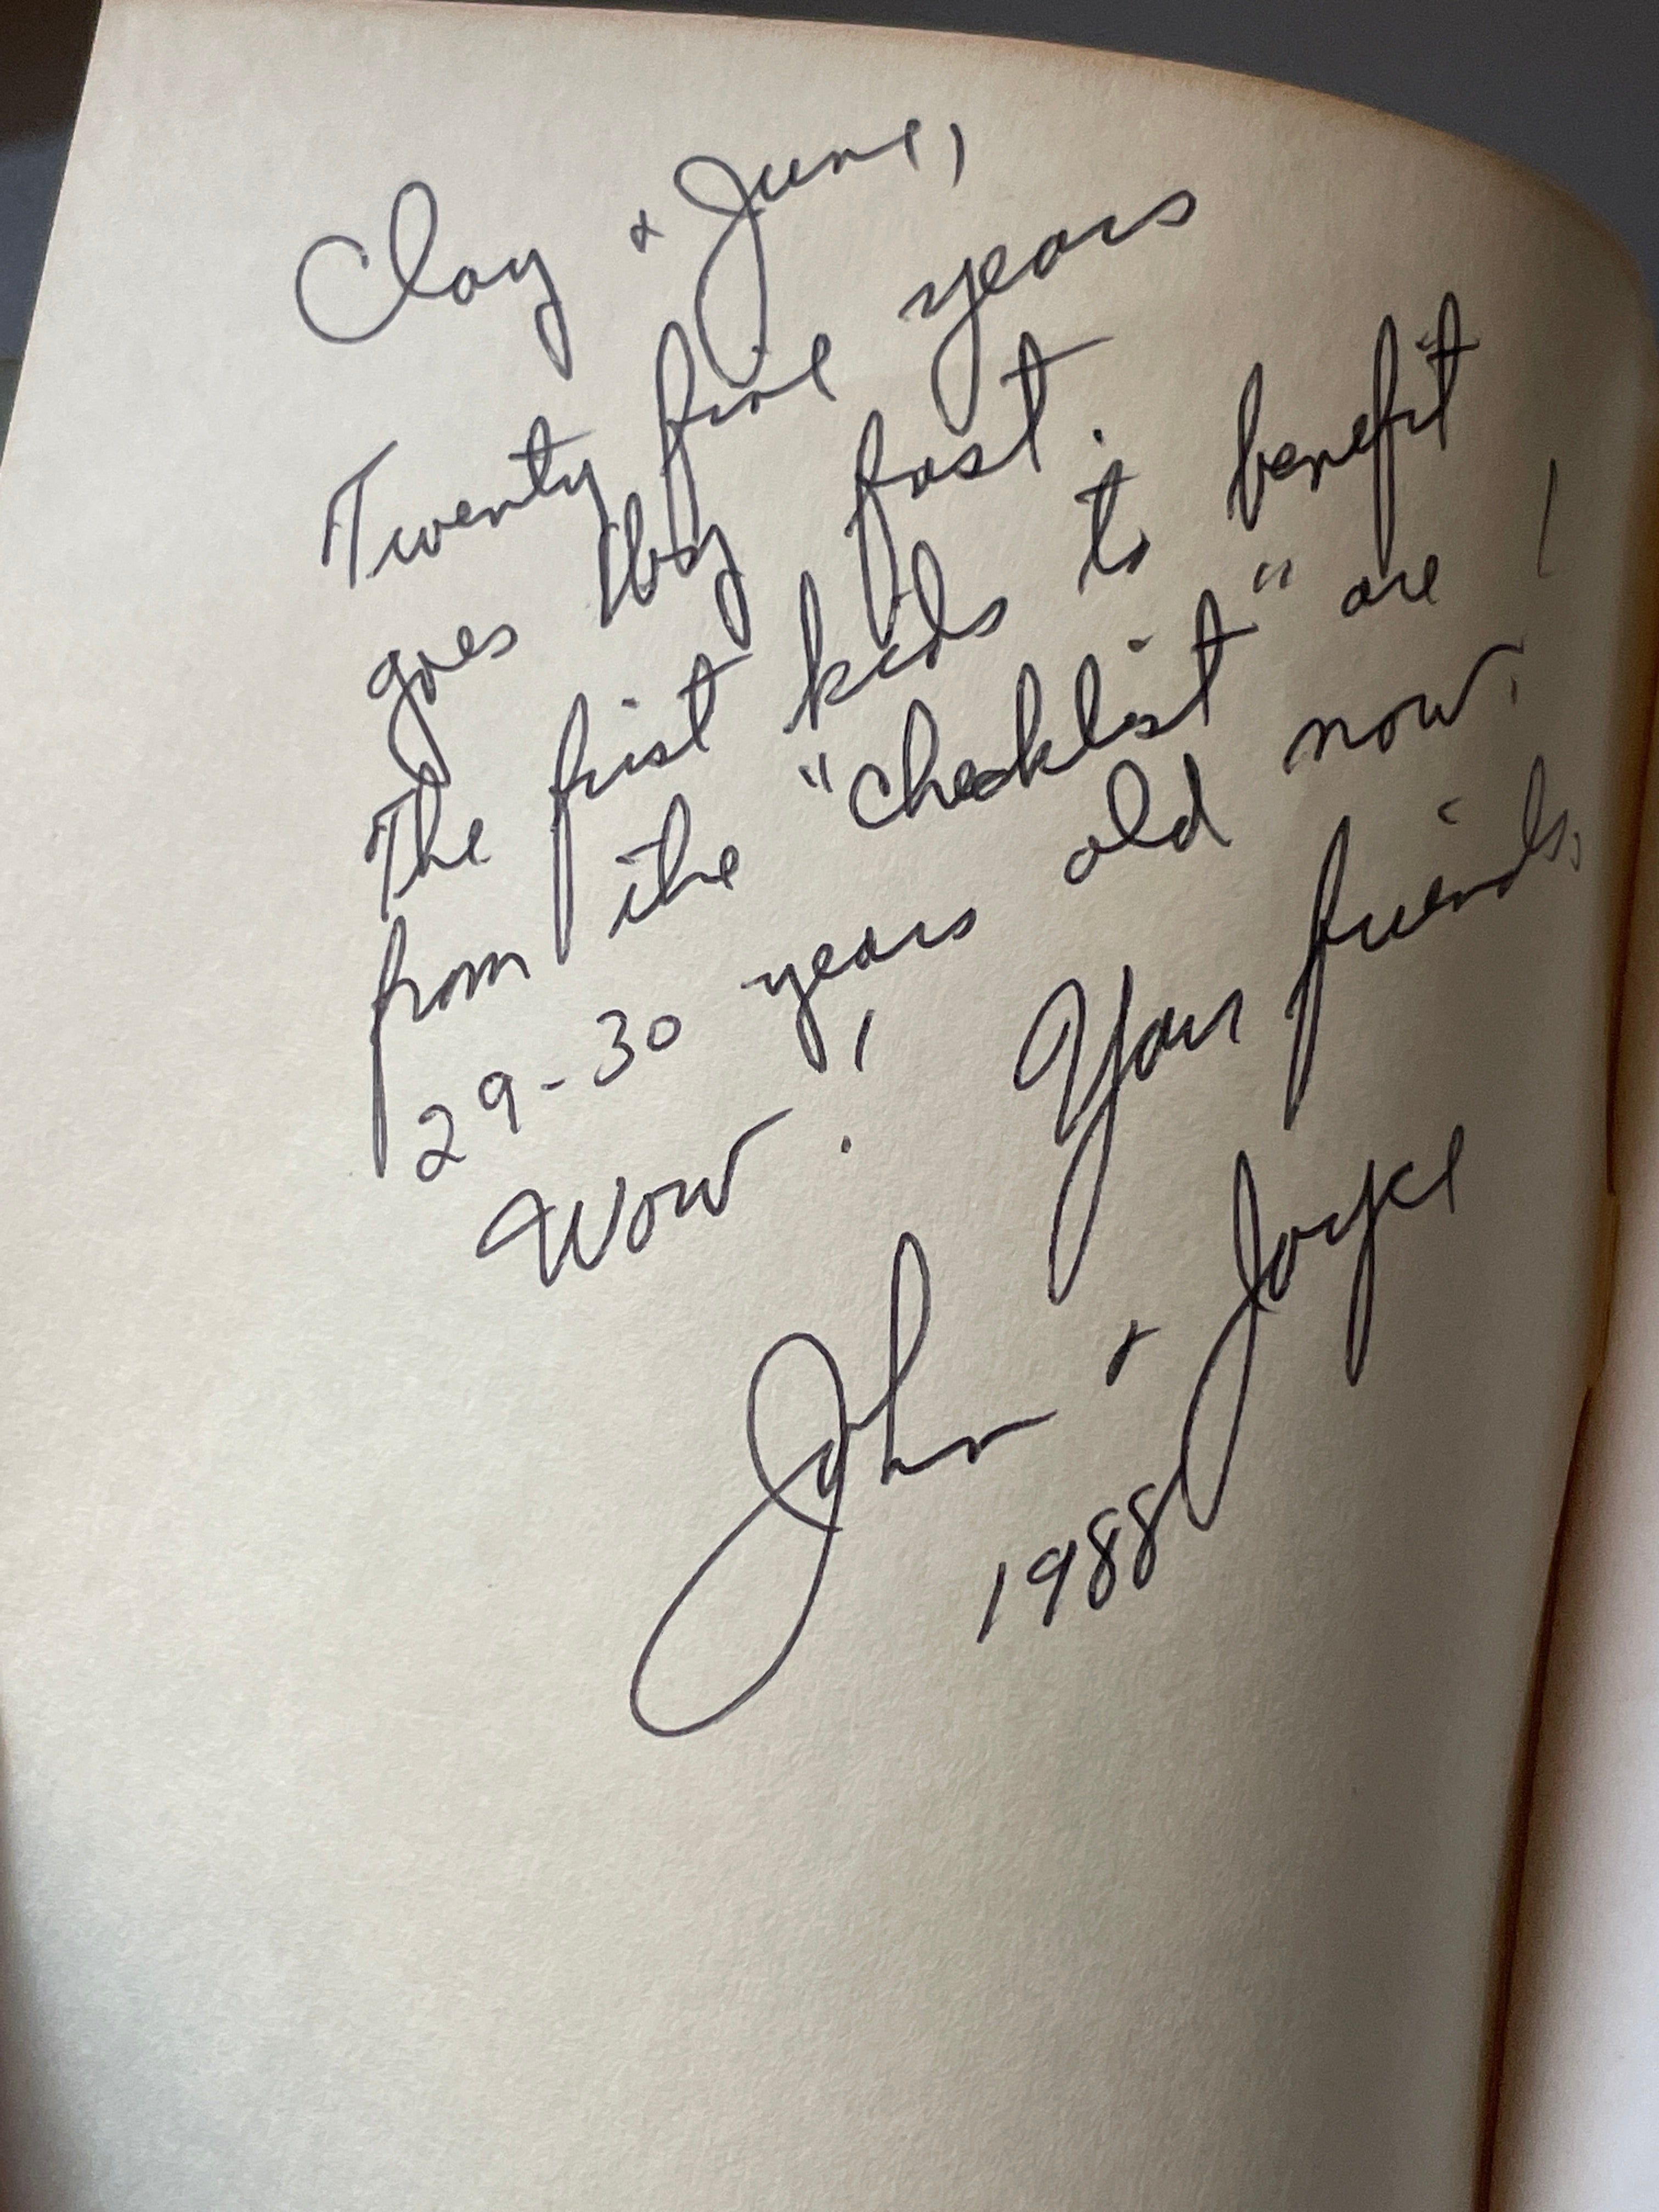 Clay & June,
Twenty five years
goes by fast.
The first kids to benefit
from the "checklist" are
29-30 years old now!
Wow! Your friends,
John & Joyce
1988